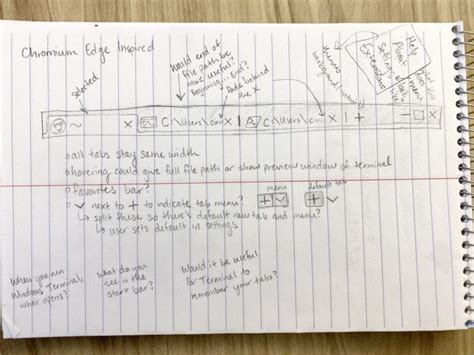 Chromium Edge Inspired
selected
Would end of
file path be
more useful?
Beginning...End?
fade behind
the X
themes
background/
Help
Settings
Extensions
menu
~ X C:\Users\cin X | C:\Users\cin X | + - □ X
all tabs stay same width
hovering could give full file path or show preview window of terminal
favorites bar?
next to + to indicate tab menu?
menu
+
default tab
+
↳ split these so there's default new tab and menu?
↳ user sets default in settings
When you run
Windows Terminal,
what opens?
What do you
see in the
start bar?
Would it be useful
for Terminal to
remember your tabs?